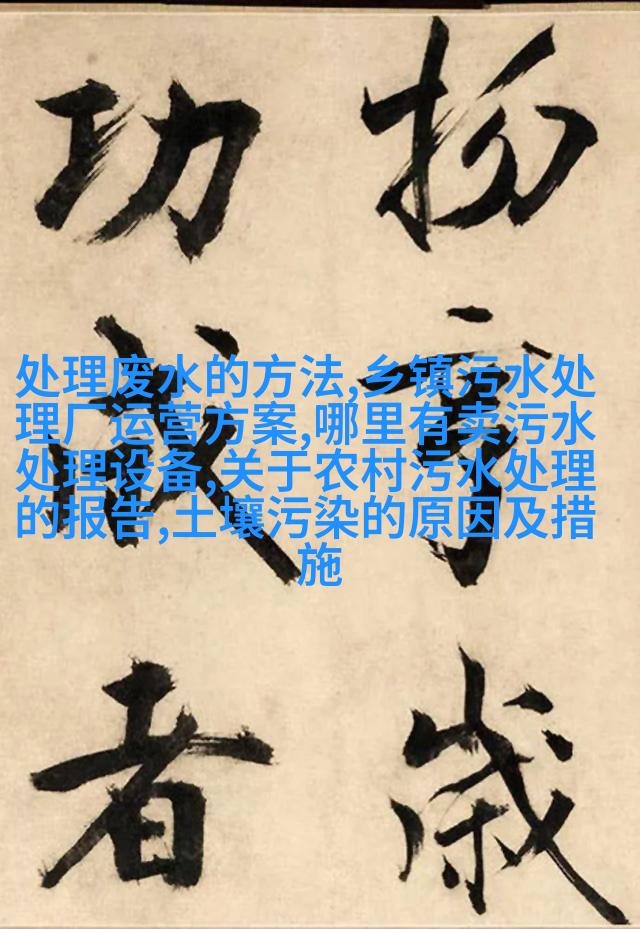 物育歲
功成者
处理废水的方法,乡镇污水处
理厂运营方案,哪里有卖污水
处理设备,关于农村污水处理
的报告,土壤污染的原因及措
施